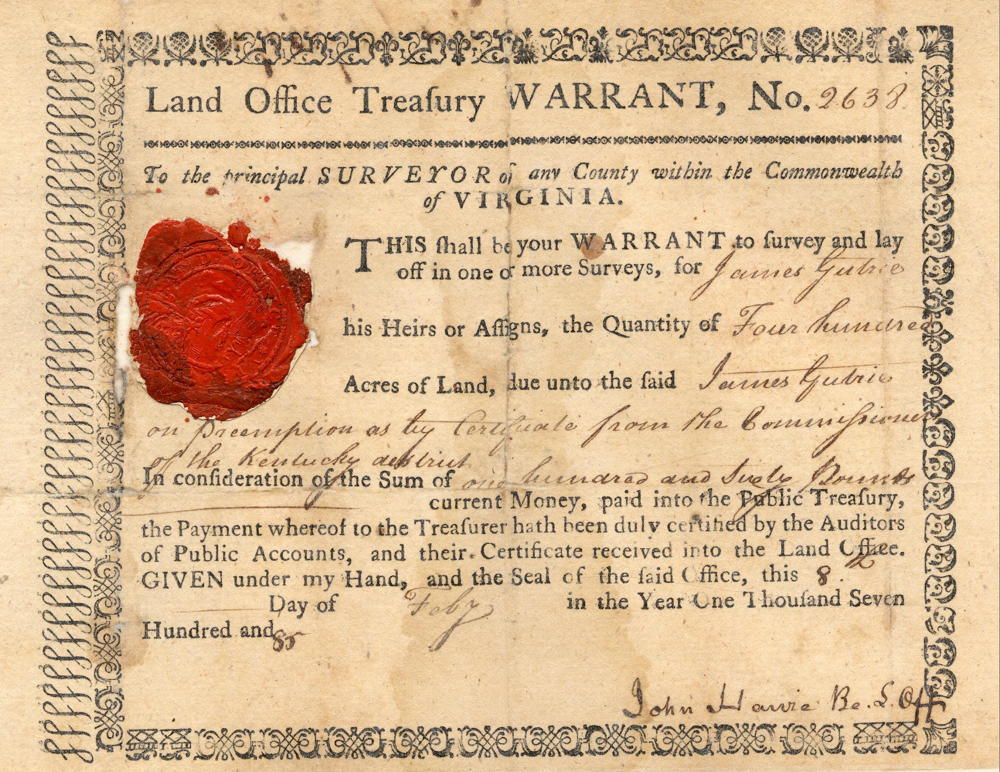 Land Office Treaſury WARRANT, No. 2638
To the principal SURVEYOR of any County within the Commonwealth
of VIRGINIA.
THIS ſhall be your WARRANT to ſurvey and lay
off in one or more Surveys, for James Gutrie
his Heirs or Aſſigns, the Quantity of Four hundred
Acres of Land, due unto the ſaid James Gutrie
on Preemption as by Certificate from the Commissioners
of the Kentucky district
In conſideration of the Sum of one hundred and Sixty Pounds
current Money, paid into the Public Treaſury,
the Payment whereof to the Treaſurer hath been duly certified by the Auditors
of Public Accounts, and their Certificate received into the Land Office.
GIVEN under my Hand, and the Seal of the ſaid Office, this 8.th
Day of Feby in the Year One Thouſand Seven
Hundred and 85
John Harvie Re. L. Off